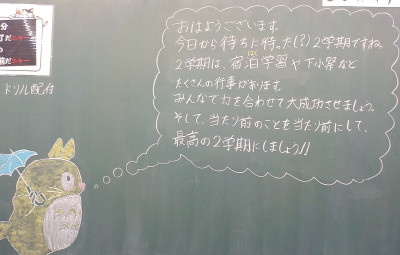 分
ドリル配付
おはようございます。
今日から待ちに待った(?)2学期ですね。
2学期は、宿泊学習や下小祭など
たくさんの行事があります。
みんなで力を合わせて大成功させましょう。
そして、当たり前のことを当たり前にして、
最高の2学期にしましょう!!